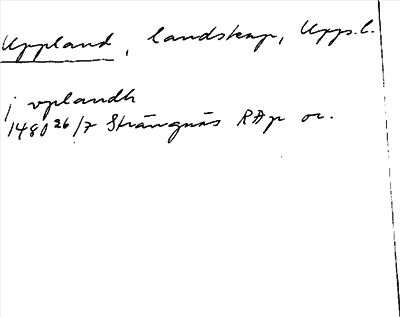 Uppland, landskap, Upps.l.
j vplandh
1480 26/7 Strängnäs RAp or.